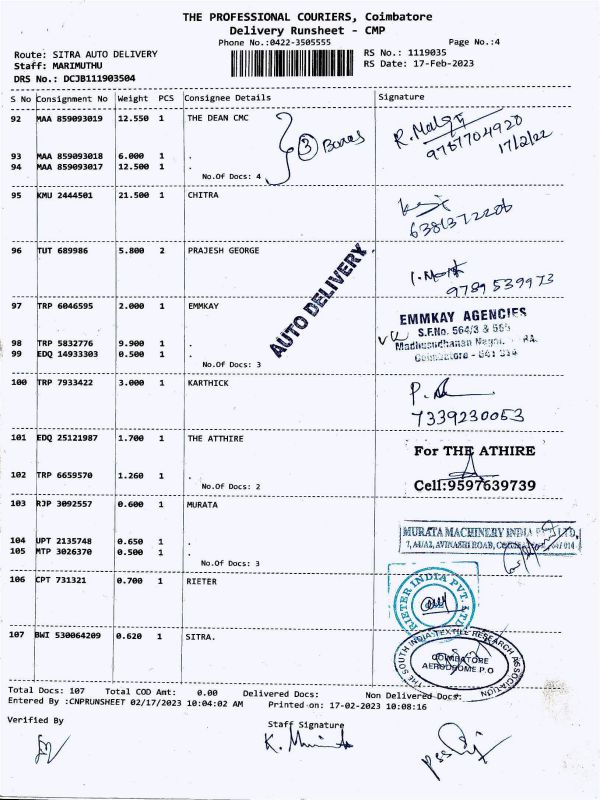 THE PROFESSIONAL COURIERS, Coimbatore
Delivery Runsheet - CMP
Phone No.:0422-3505555 Page No.:4
Route: SITRA AUTO DELIVERY RS No.: 1119035
Staff: MARIMUTHU RS Date: 17-Feb-2023
DRS No.: DCJB111903504
S No Consignment No Weight PCS Consignee Details Signature
92 MAA 859093019 12.550 1 THE DEAN CMC
3 Boxes
9787704920
17/2/22
93 MAA 859093018 6.000 1 .
94 MAA 859093017 12.500 1 .
No.Of Docs: 4
95 KMU 2444501 21.500 1 CHITRA
6381372206
96 TUT 689986 5.800 2 PRAJESH GEORGE
9789539973
AUTO DELIVERY
97 TRP 6046595 2.000 1 EMMKAY
EMMKAY AGENCIES
S.F.No. 564/3 & 565
Madhusudhanan Nagar,
Coimbatore - 641 014
98 TRP 5832776 9.900 1 .
99 EDQ 14933303 0.500 1 .
No.Of Docs: 3
100 TRP 7933422 3.000 1 KARTHICK
7339230053
101 EDQ 25121987 1.700 1 THE ATTHIRE
For THE ATHIRE
102 TRP 6659570 1.260 1 .
No.Of Docs: 2
Cell:9597639739
103 RJP 3092557 0.600 1 MURATA
MURATA MACHINERY INDIA PVT. LTD.
104 UPT 2135748 0.650 1 .
105 MTP 3026370 0.500 1 .
No.Of Docs: 3
106 CPT 731321 0.700 1 RIETER
RIETER INDIA PVT. LTD
107 BWI 530064209 0.620 1 SITRA.
THE SOUTH INDIA TEXTILE RESEARCH ASSOCIATION
COIMBATORE
AERODROME P.O
Total Docs: 107 Total COD Amt: 0.00 Delivered Docs: Non Delivered Docs:
Entered By :CNPRUNSHEET 02/17/2023 10:04:02 AM Printed on: 17-02-2023 10:08:16
Verified By Staff Signature